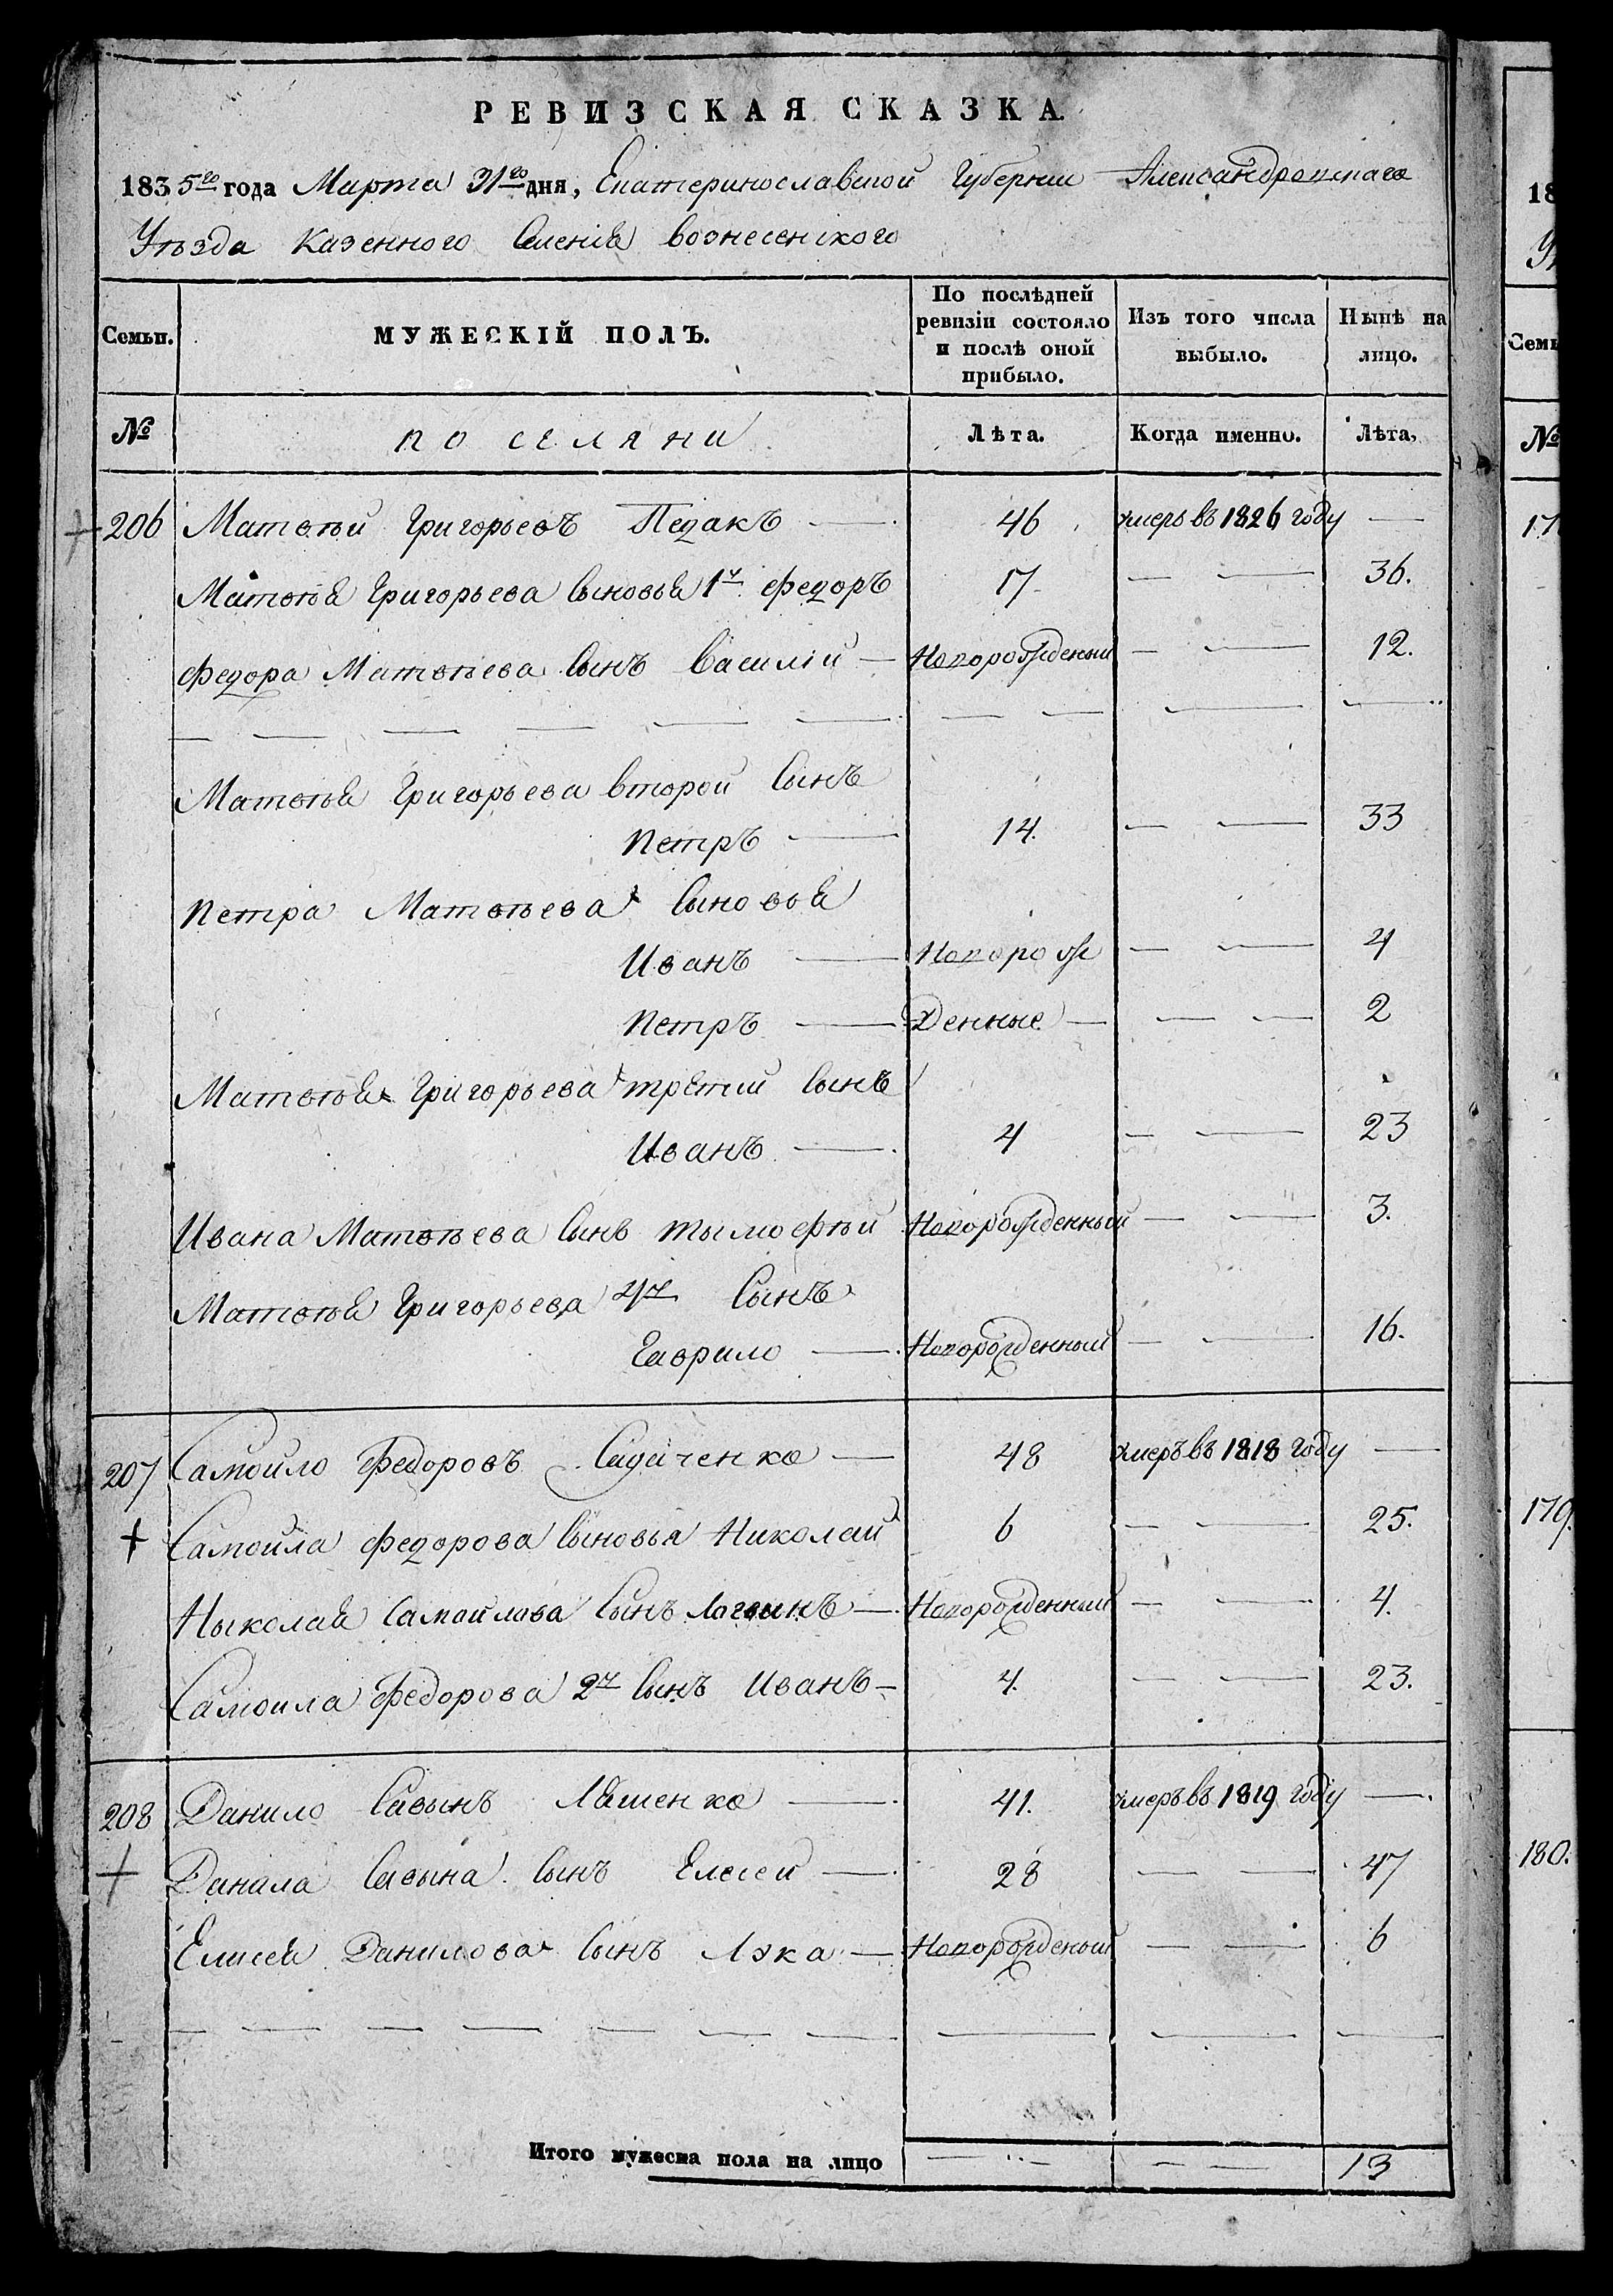 РЕВИЗСКАЯ СКАЗКА
1835го года Марта 31го дня, Екатеринославской Губернии Александровскаго
Уъзда Казенного Селенія вознесенского
Семьи. МУЖЕСКІЙ ПОЛЪ. По послѣдней ревизіи состояло и послѣ оной прибыло. Изъ того числа выбыло. Нынѣ на лицо.
№ поселяни Лѣта. Когда именно. Лѣта.
206 Матвѣй Григорьевъ Педакъ 46 умеръ въ 1826 году
Матвѣя Григорьева сыновья 1й федоръ 17 36.
федора Матвѣева сынъ Василій Новорожденый 12.
Матвѣя Григорьева второй сынъ
Петръ 14. 33
Петра Матвѣева сыновья
Иванъ Новорож 4
Петръ денные 2
Матвѣя Григорьева третий сынъ
Иванъ 4 23
Ивана Матвѣева сынъ тымофѣй Новорожденный 3.
Матвѣя Григорьева 4й Сынъ
Гаврило Новорожденный 16.
207 Самойло Федоровъ 48 умеръ въ 1818 году
Самойла федорова сыновья Николай 6 25.
Ныколая Самойлова Сынъ Логвинъ Новорожденный 4.
Самоила Федорова 2й сынъ Иванъ 4. 23.
208 Данило Савынъ Ляшенко 41. умеръ въ 1819 году
Данила Савына сынъ Елесей 28 47
Елисея Данилова сынъ Лука Новорожденый 6
Итого мужеска пола на лицо 13
18
Семь
№
17
179.
180.